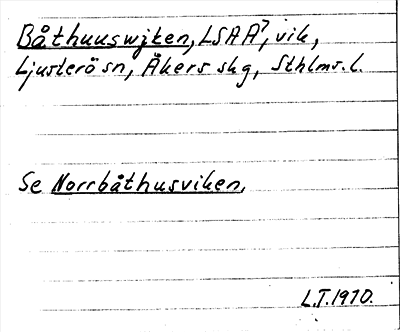 Båthuuswjken, LSA A7, vik,
Ljusterö sn, Åkers skg, Sthlms. l.
Se Norrbåthusviken.
L.T. 1970.